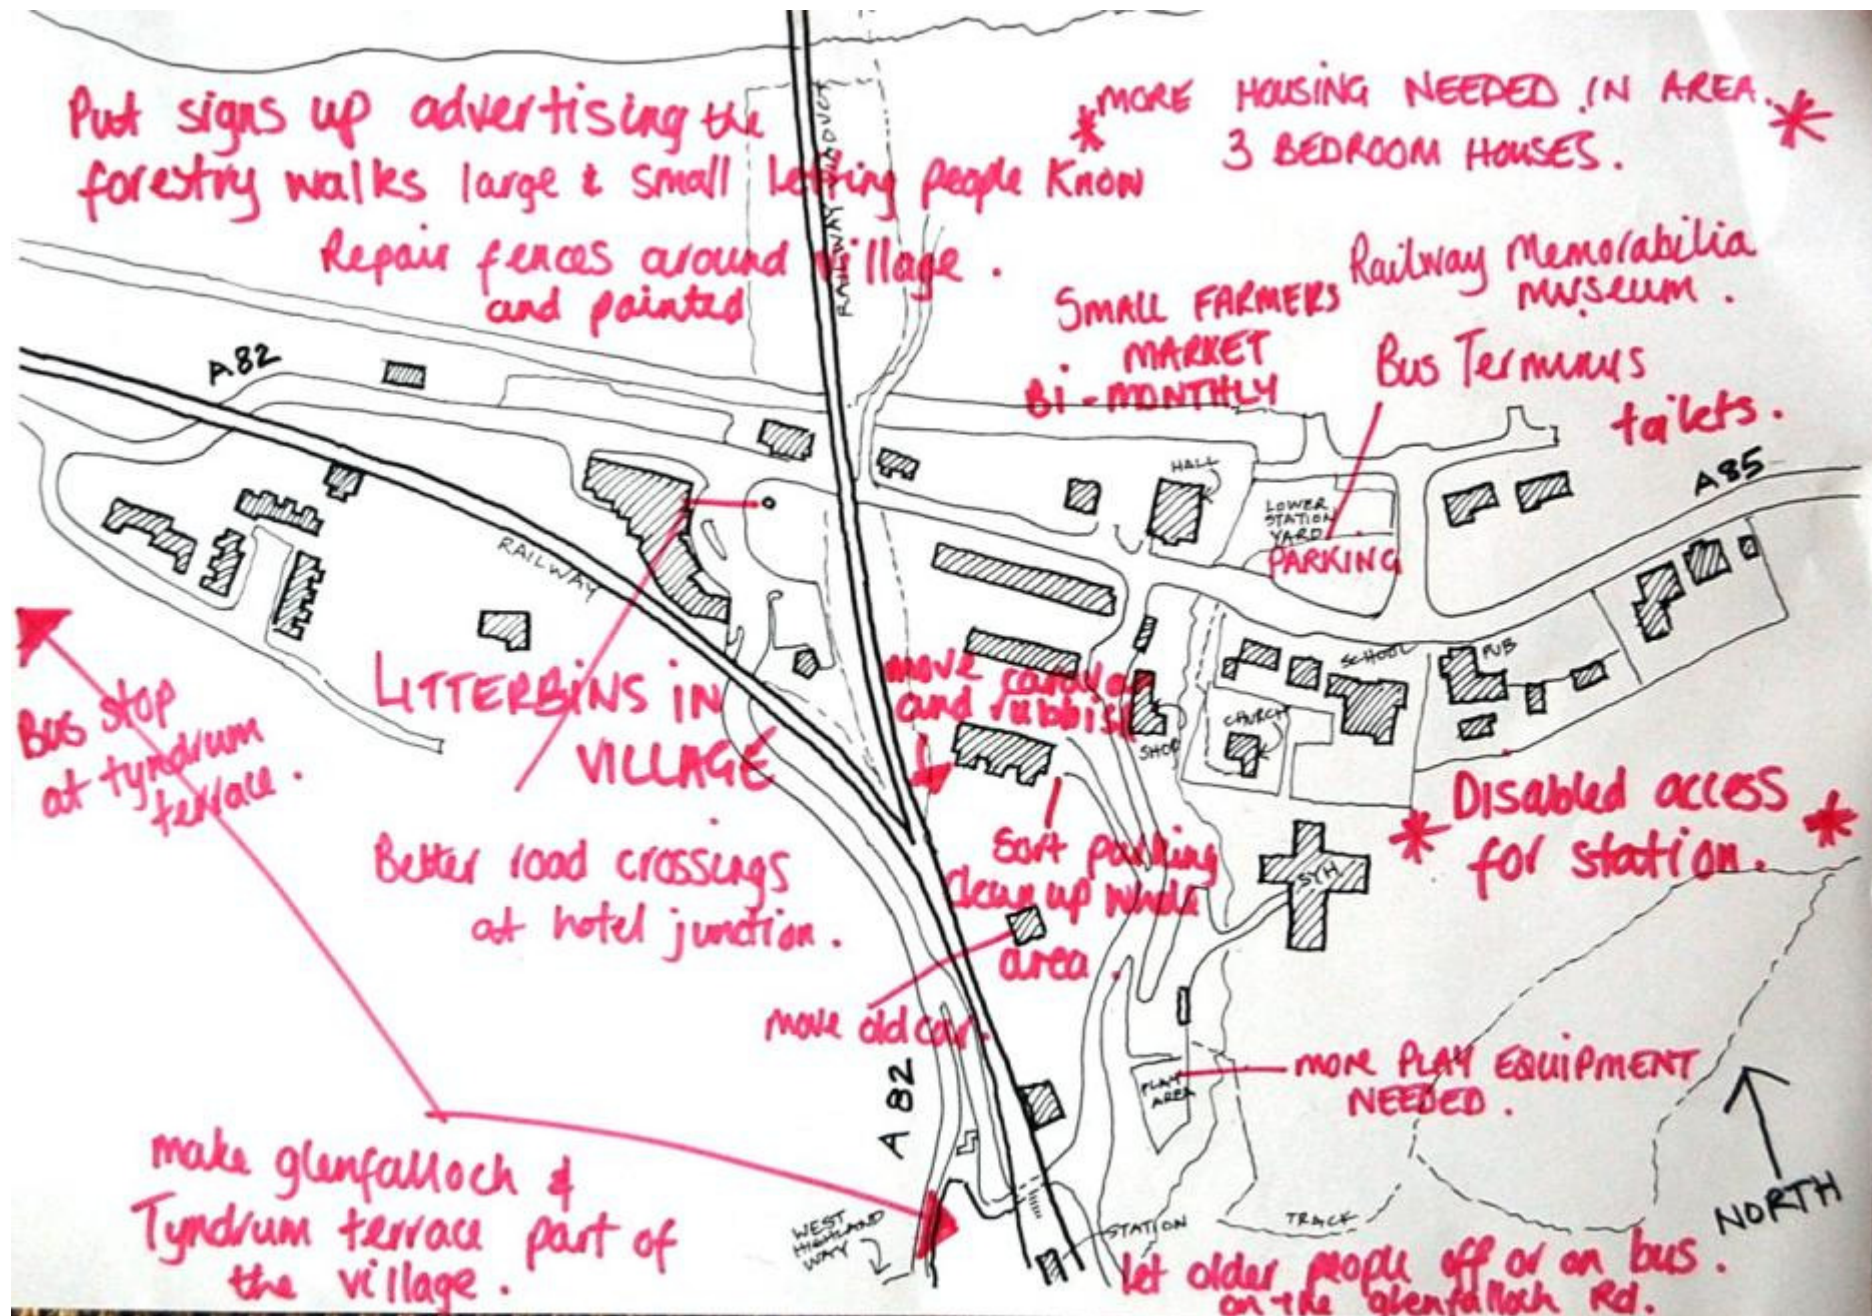 Put signs up advertising the
forestry walks large & small letting people know
Repair fences around village.
and painted
*MORE HOUSING NEEDED IN AREA. *
3 BEDROOM HOUSES.
Railway Memorabilia
museum.
SMALL FARMERS
MARKET
Bi-MONTHLY
Bus Terminus
toilets.
RAILWAY VIADUCT
A82
A85
HALL
LOWER
STATION
YARD
PARKING
RAILWAY
SCHOOL
PUB
CHURCH
SHOP
SYH
Bus stop
at tyndrum
terrace.
LITTERBINS IN
VILLAGE
and rubbish
Better road crossings
at hotel junction.
Sort parking
clean up whole
area.
* Disabled access *
for station.
move old car.
A 82
PLAY
AREA
more PLAY EQUIPMENT
NEEDED.
make glenfalloch &
Tyndrum terrace part of
the village.
WEST
HIGHLAND
WAY
STATION
TRACK
NORTH
let older people off or on bus.
on the glenfalloch Rd.